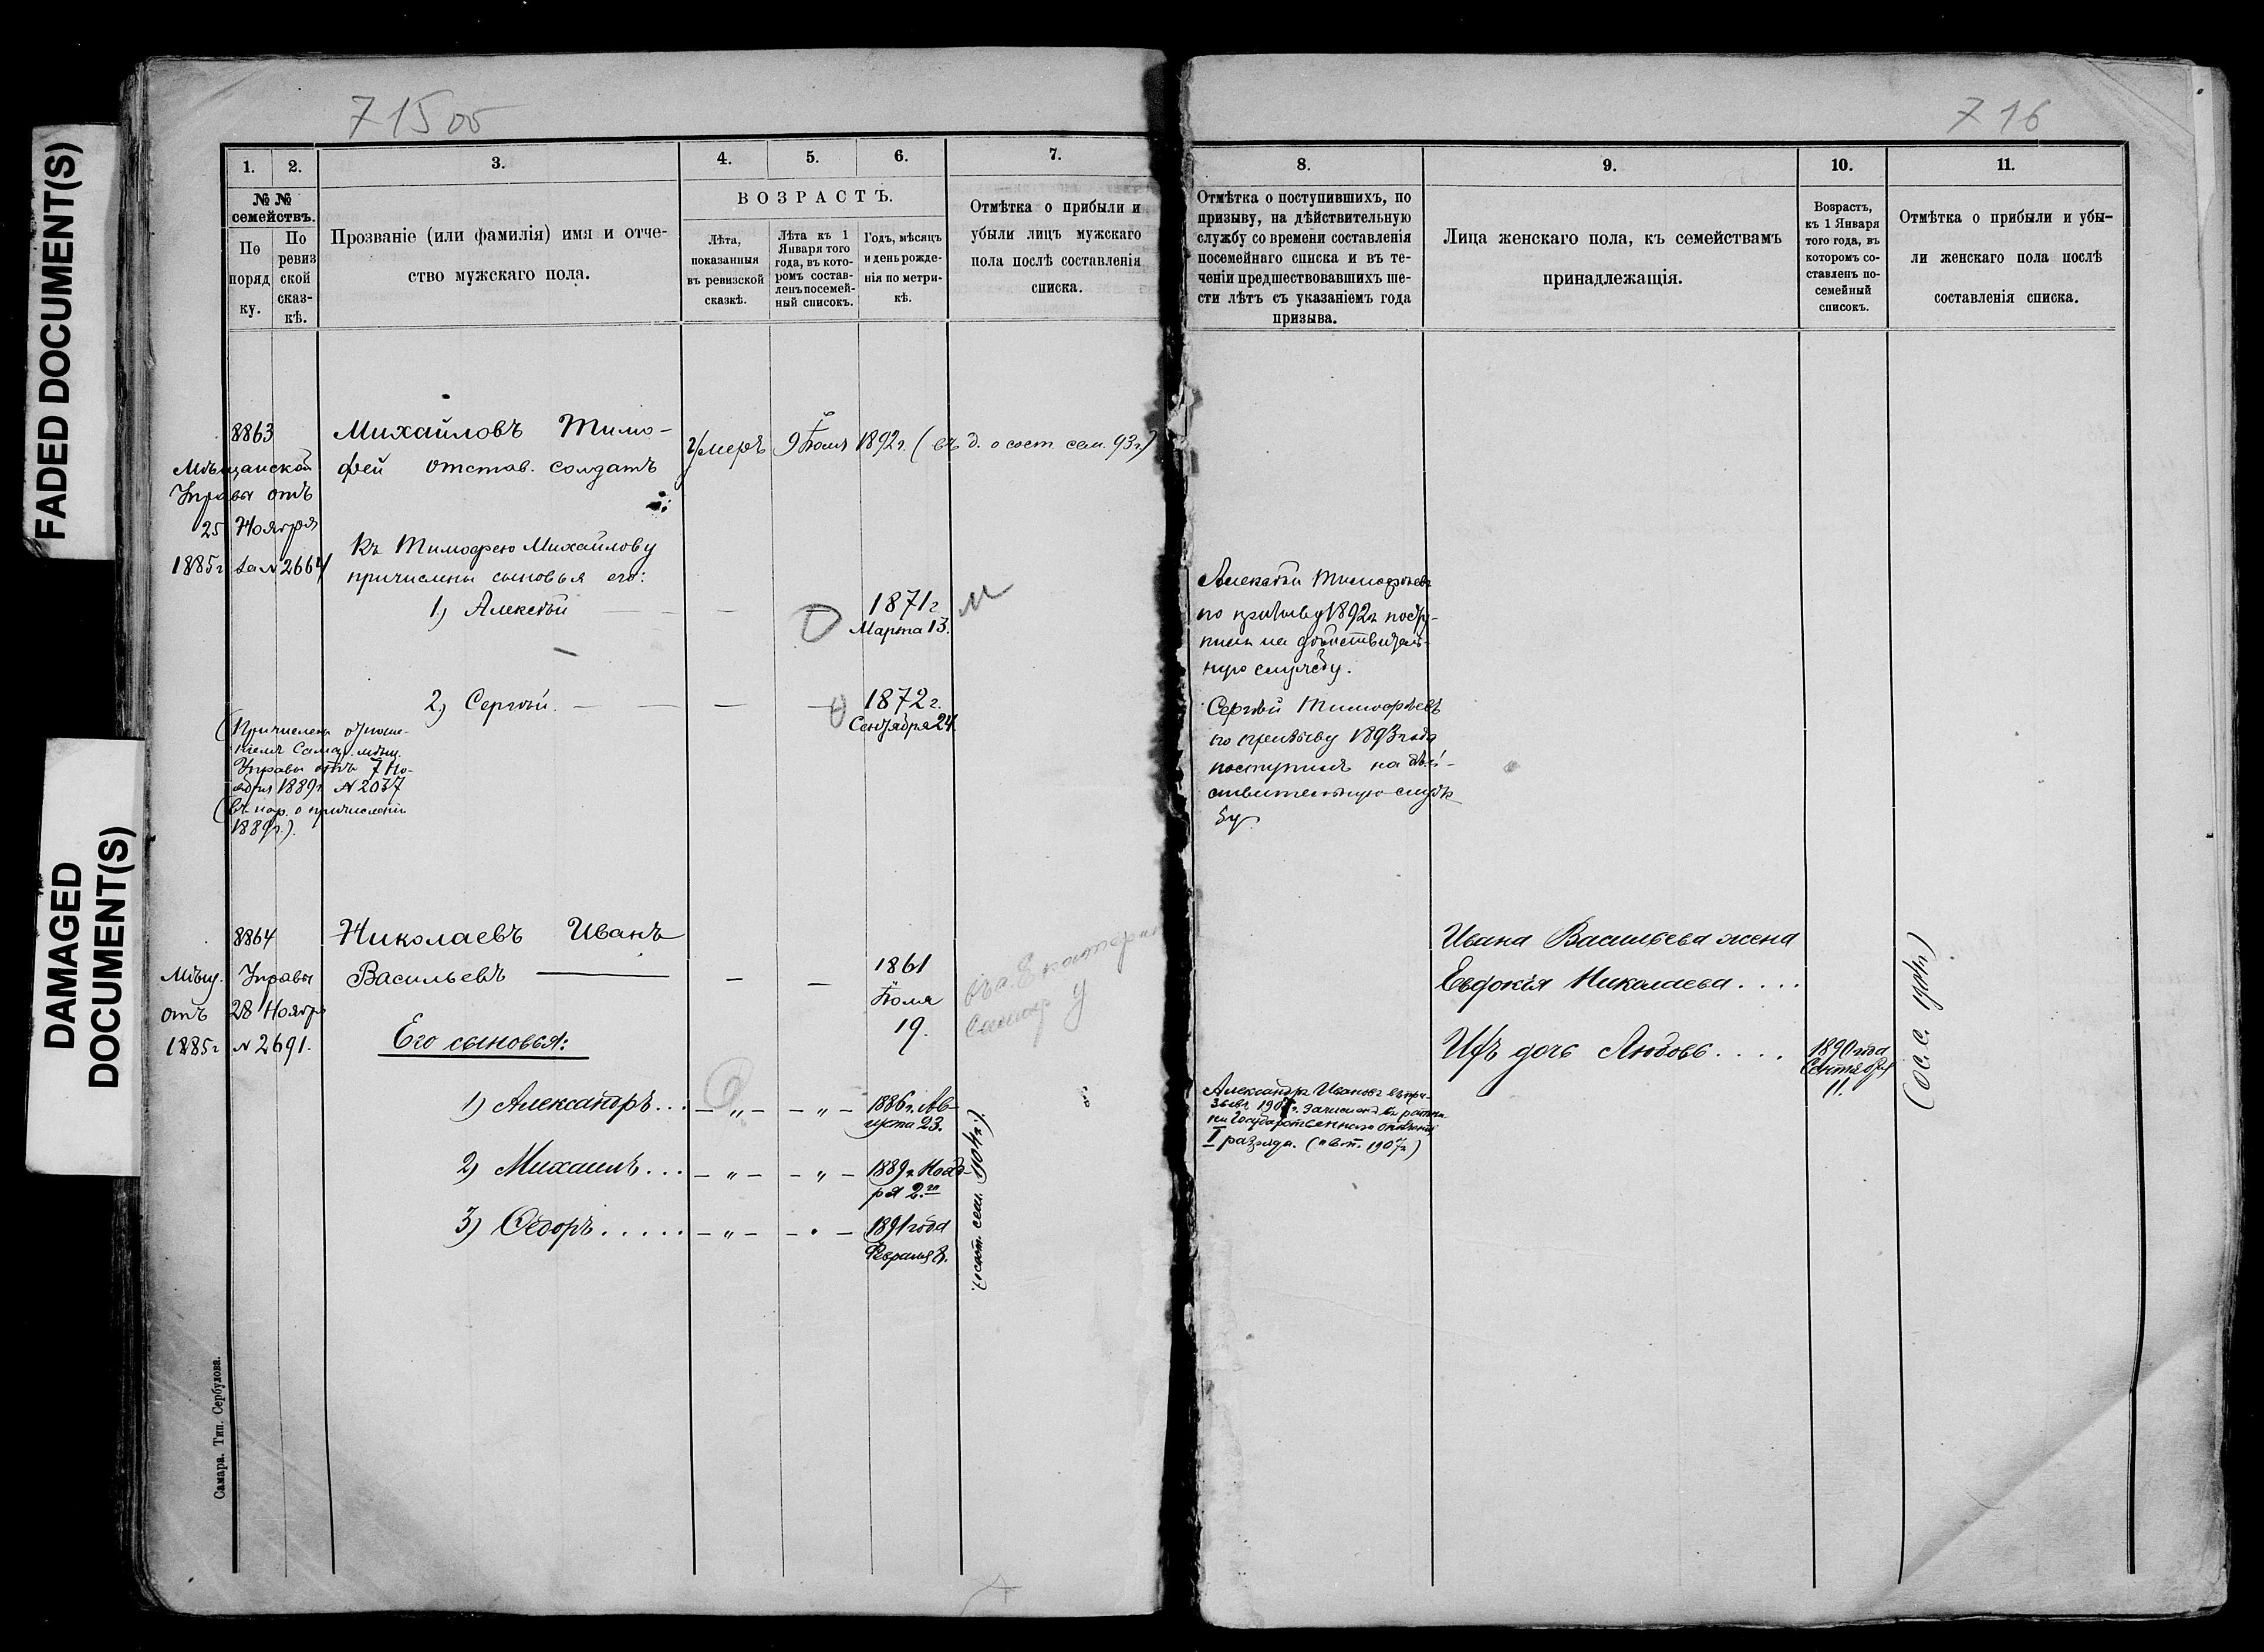 FADED DOCUMENT(S)
DAMAGED
DOCUMENT(S)
715 об
1.
2.
3.
4.
5.
6.
7.
№ №
семействъ.
По
поряд
ку.
По
ревиз
ской
сказ-
кѣ.
Прозваніе (или фамилія) имя и отче-
ство мужскаго пола.
ВОЗРАСТЪ.
Лѣта,
показанныя
въ ревизской
сказкѣ.
Лѣта къ 1
Января того
года, въ кото-
ромъ состав-
ленъ посемей-
ный списокъ.
Годъ, мѣсяцъ
и день рожде-
нія по метри-
кѣ.
Отмѣтка о прибыли и
убыли лицъ мужскаго
пола послѣ составленія
списка.
8863
Мѣщанской
Управы отъ
25 Ноября
1885г за № 2664
Михайловъ Тимо-
фей отстав. солдатъ
Умеръ 9 Іюля 1892г. (въ д. о сост. сем. 93г.)
Къ Тимофею Михайлову
причислены сыновья его:
1) Алексѣй
1871г
Марта 13.
2) Сергѣй.
1872г.
Сентября 24.
(Причислены отноше-
ніемъ Самар. мѣщ.
Управы отъ 7 Но-
ября 1889г № 2037
(въ нар. о причисленіи
1889г.).
8864
Мѣщ. Управы
отъ 28 Ноября
1885г № 2691.
Николаевъ Иванъ
Васильевъ
1861
Іюля
19.
Его сыновья:
1) Александръ...
1886г. Ав-
густа 23.
2) Михаилъ...
1889г. Нояб-
ря 2.го
3) Ѳедоръ.....
1891 года
Февраля 8.
(сост. сем. 1904г.)
Самара. Тип. Сербулова.
716
8.
9.
10.
11.
Отмѣтка о поступившихъ, по
призыву, на дѣйствительную
службу со времени составленія
посемейнаго списка и въ те-
ченіи предшествовавшихъ ше-
сти лѣтъ съ указаніемъ года
призыва.
Лица женскаго пола, къ семействамъ
принадлежащія.
Возрастъ,
къ 1 Января
того года, въ
которомъ со-
ставленъ по-
семейный
списокъ.
Отмѣтка о прибыли и убы-
ли женскаго пола послѣ
составленія списка.
Алексѣй Тимофѣевъ
по призыву 1892г посту-
пилъ на дѣйствитель-
ную службу.
Сергѣй Тимофѣевъ
по призыву 1893 года
поступилъ на дѣй-
ствительную служ-
бу.
Ивана Васильева жена
Евдокія Николаева....
Ихъ дочь Любовь....
1890 года
Сентября
11.
(о с. с. 1904г.)
Александръ Ивановъ въ при-
зывъ 1907г. зачисленъ въ ратни-
ки Государственнаго ополченія
I разряда.